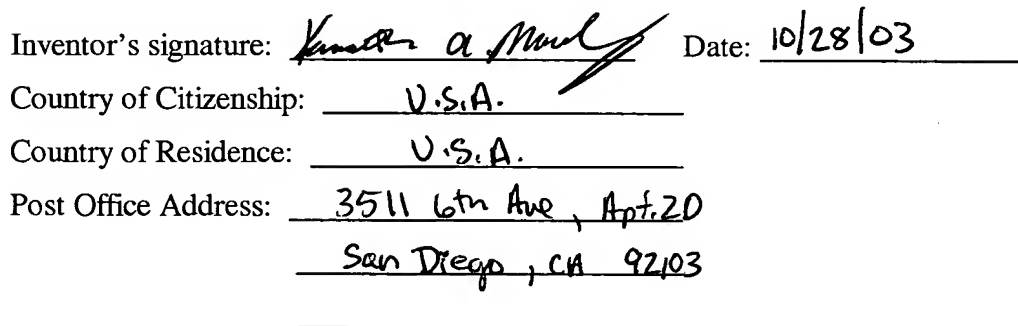 Inventor's signature: Kenneth A Date: 10/28/03
Country of Citizenship: U.S.A.
Country of Residence: U.S.A.
Post Office Address: 3511 6th Ave, Apt. 20
San Diego, CA 92103